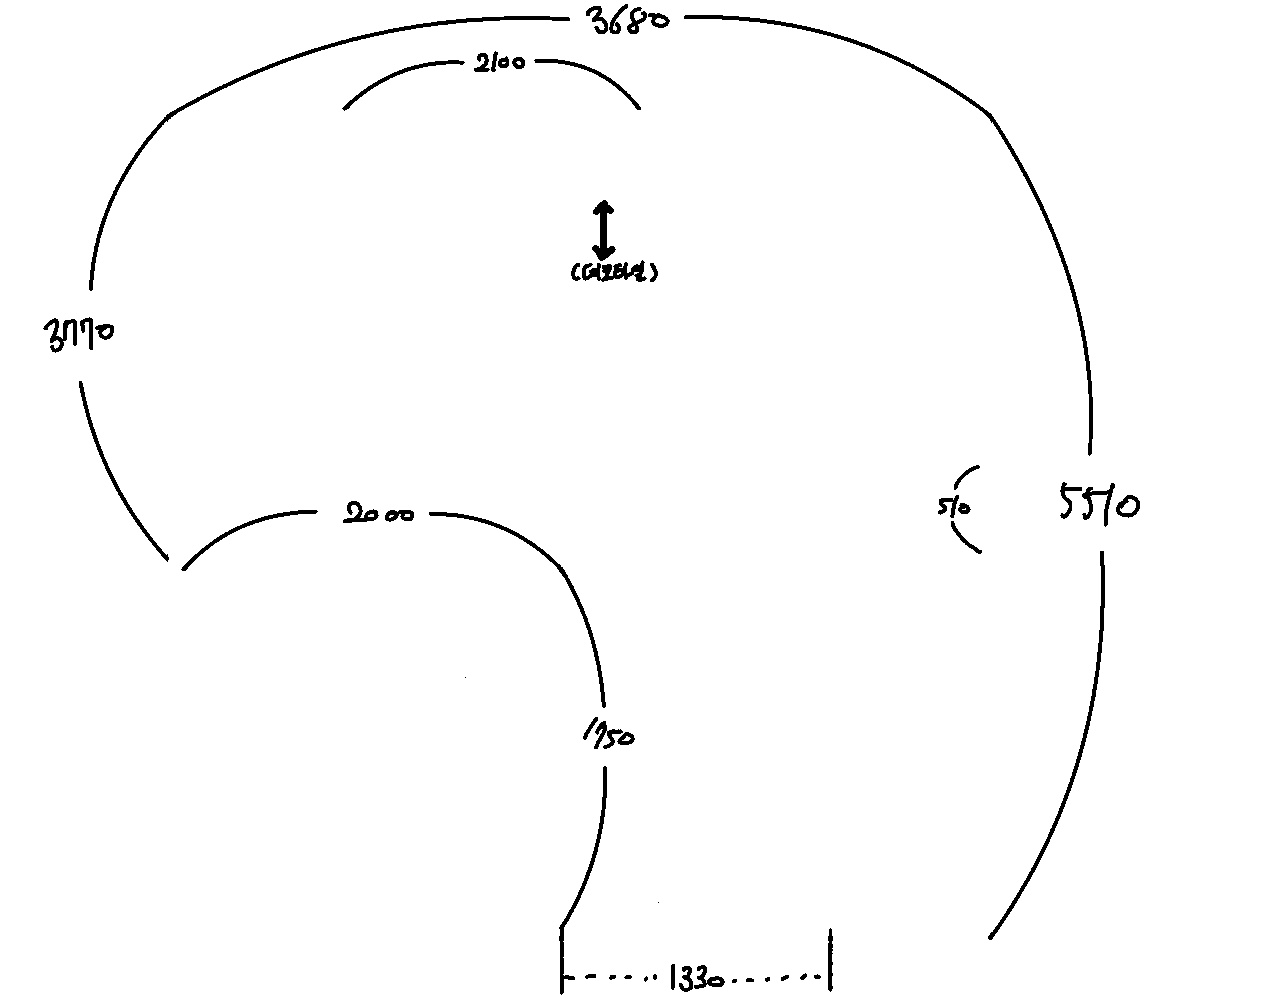 3680
2100
(데코타일)
3770
2000
510
5510
1750
1330